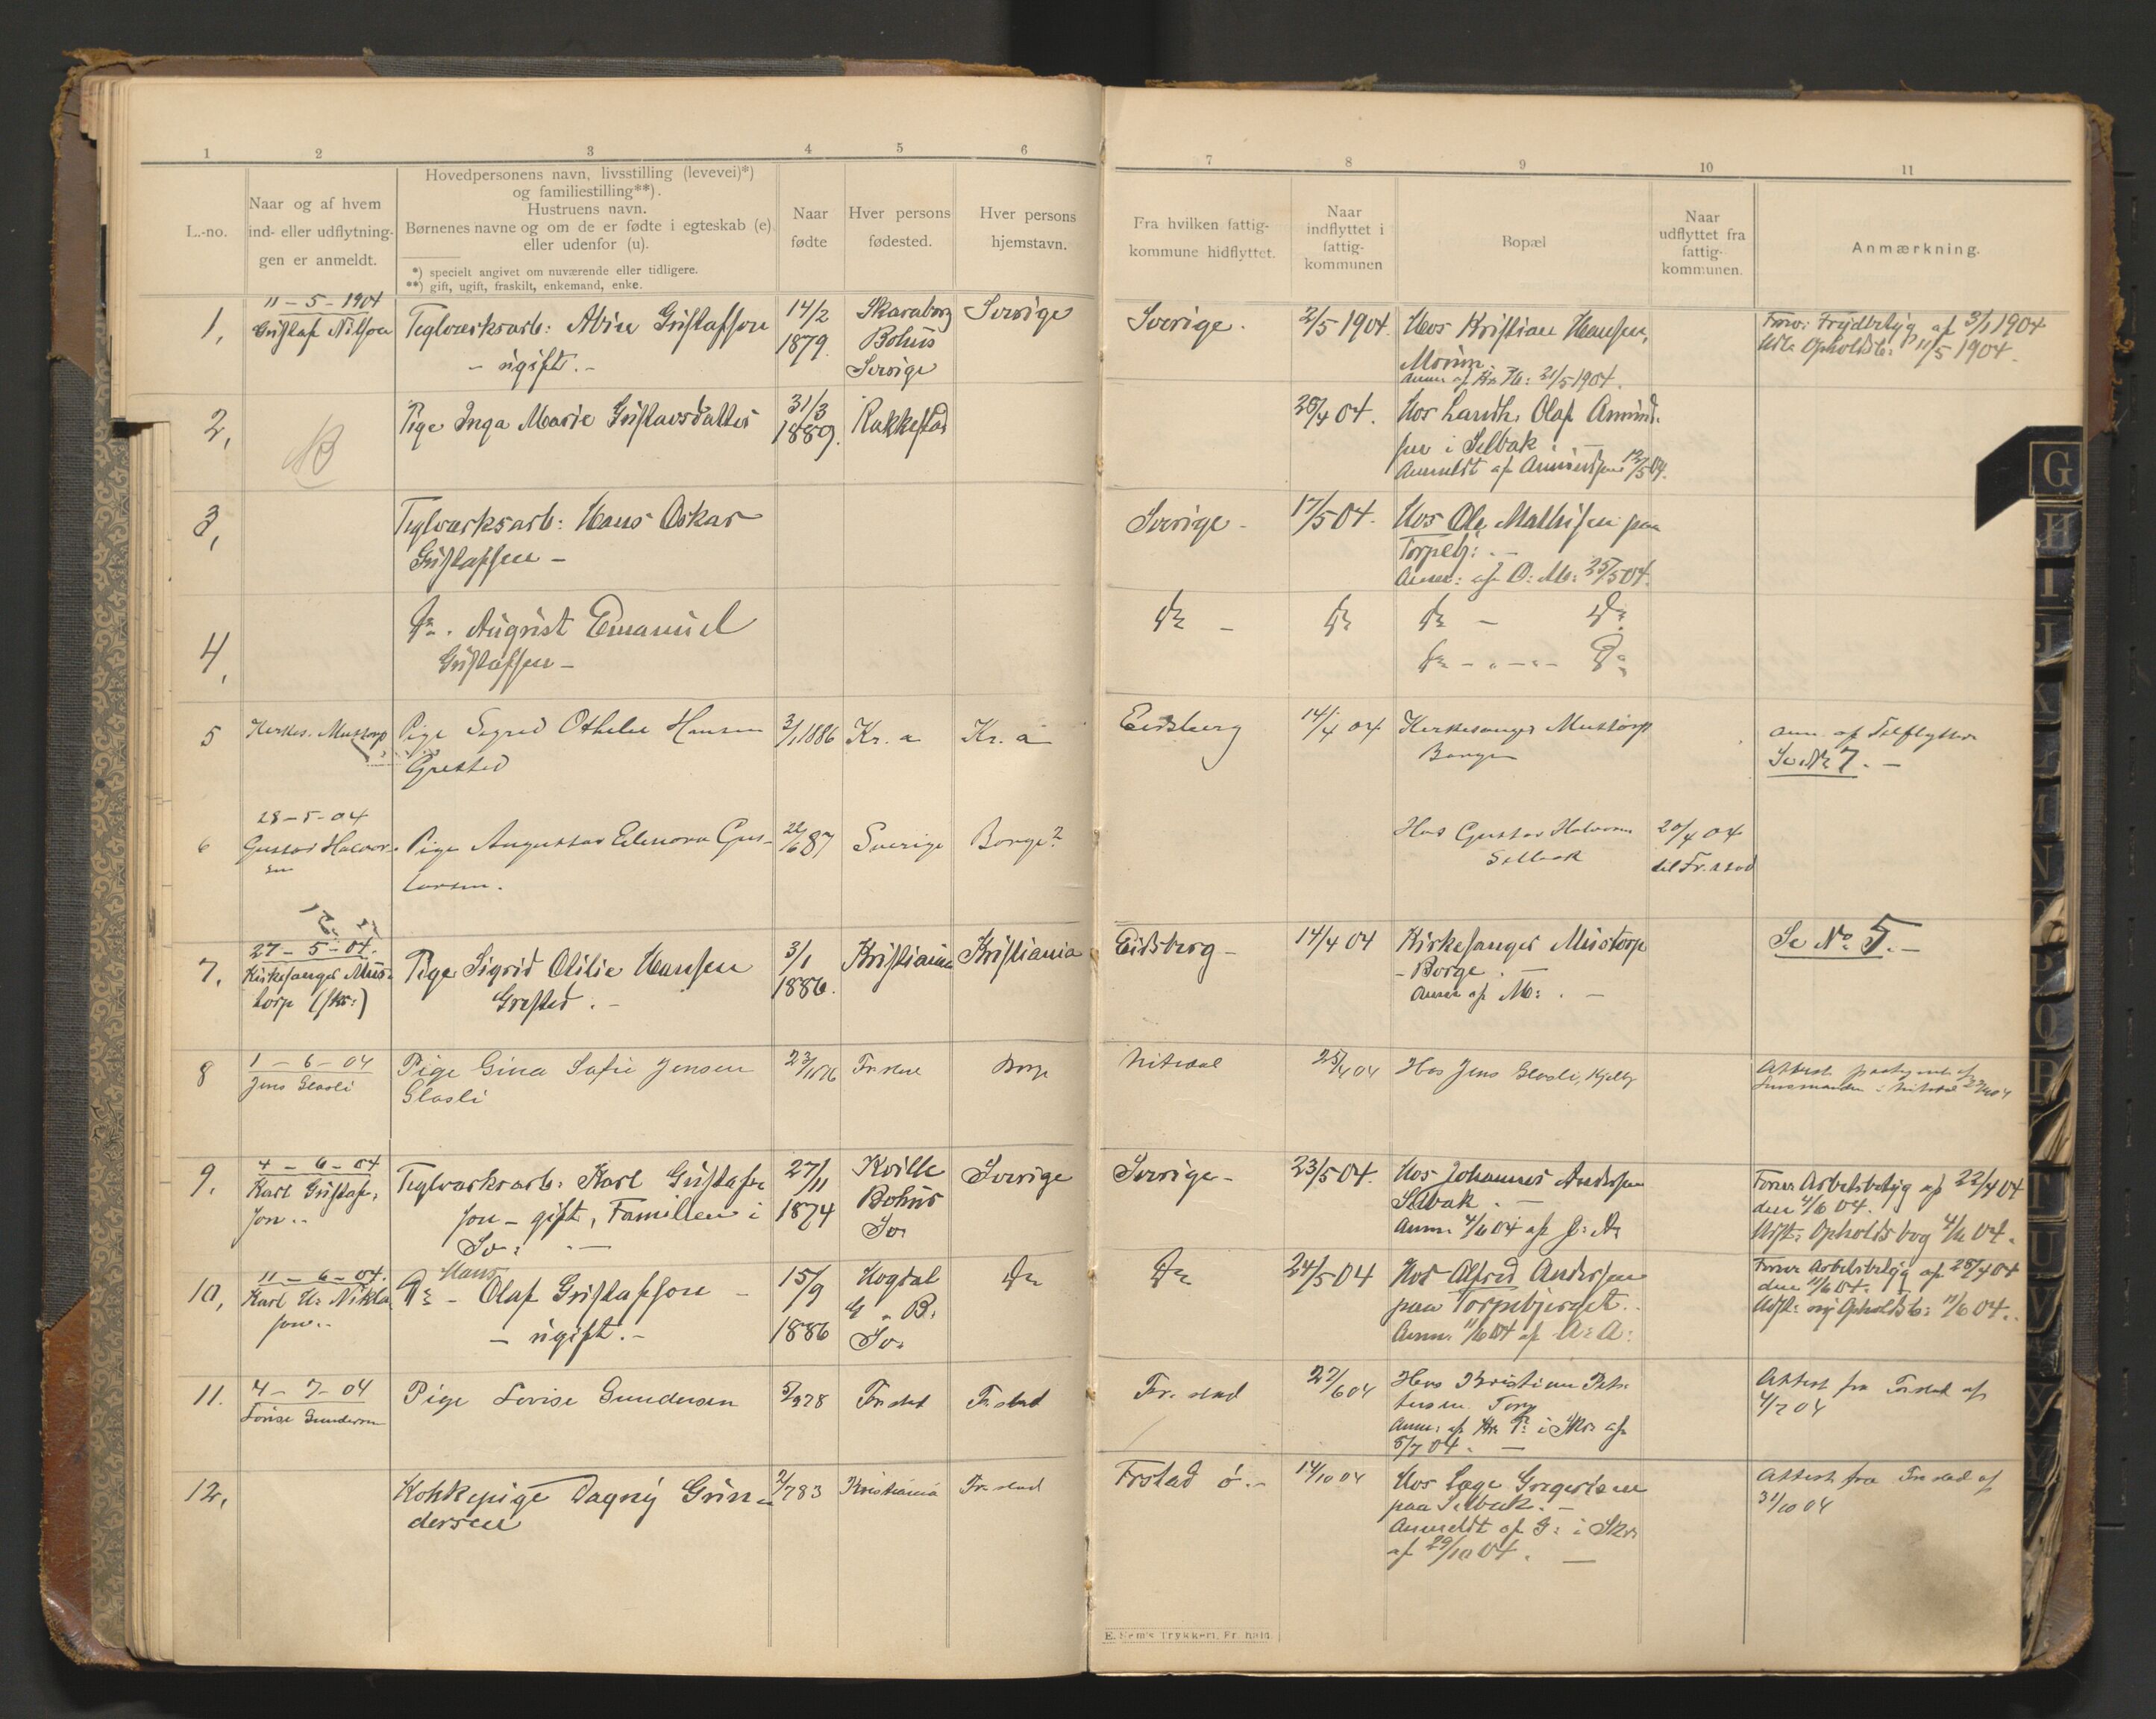 1 2 3 4 5 6
7 8 9 10 11
L.-no.
Naar og af hvem
ind- eller udflytnin-
gen er anmeldt.
Hovedpersonens navn, livsstilling (levevei)*)
og familiestilling**).
Hustruens navn.
Børnenes navne og om de er fødte i egteskab (e)
eller udenfor (u).
*) specielt angivet om nuværende eller tidligere.
**) gift, ugift, fraskilt, enkemand, enke.
Naar
fødte
Hver persons
fødested.
Hver persons
hjemstavn.
Fra hvilken fattig-
kommune hidflyttet.
Naar
indflyttet i
fattig-
kommunen
Bopæl
Naar
udflyttet fra
fattig-
kommunen.
Anmærkning.
1, 11-5-1904 Teglværksarb: Gustafson 14/2 Skaraborg Sverige Sverige. 2/5 1904. Hos Kristian Hansen,
Gustaf Nilson - ugift. - 1879. Bohus
Sverige
Anm. af Kr. H: 21/5 1904.
3/1 1904
Udst. Opholdsb: 11/5 1904.
2, Pige Inga Marie Gustavsdatter 31/3 1889. Rakkestad 25/4 04. Hos Landh. Olaf Amund-
sen i Selbak. -
Anmeldt af Amundsen 12/5 04.
3, Teglværksarb: Hans Oskar Sverige - 17/5 04. Hos Ole Mathisen paa
Gustafsen -
Torpebj: . -
Anm: af O: M: 25/5 04.
4, Do. August Emanuel Do - Do Do - Do
Gustafsen - Do - " - " - Do
5 Kirkes. Mustorp Pige Sigrid Othelie Hansen 3/1 1886 Kr. a Kr. a Eidsberg 14/4 04 Kirkesanger Mustorp
Grested Borge
anm. af Tilflytter
Se No 7. -
6 28-5-04
Gustav Halvor- Pige Augusta Elenora Gus- 87 Sverige Borge? Hos Gustav Halvorsen 20/4 04
sen tavsen. Selbak til Fr.stad
7. 27-5-04. Pige Sigrid Otilie Hansen 3/1 Kristiania Kristiania Eidsberg - 14/4 04 Kirkesanger Mustorp Se No. 5. -
Kirkesanger Mus- Grested. - 1886. - Borge. -
torp (skr:) Anm af M: . -
8 1-6-04 Pige Gina Sofie Jensen Fr.stad Borge Nitedal 25/4 04 Hos Jens Glosli,
Jens Glosli Glosli
Attest
Lensmanden i Nitedal
9. 4-6-04 Teglværksarb: Karl Gustaf- 27/11 Kville Sverige Sverige - 23/5 04. Hos Johannes Andersen
Karl Gustaf- son - gift, Familien i 1874 Bohus Selbak. -
son.. Sv: . - Sv. Anm. 4/6 04 af J: A:
Forev. Arbeidsbetyg af 22/4 04
den 4/6 04.
Udst: Opholdsbog 4/6 04.
10, 11-6-04. Do - Hans Olaf Gustafson - 15/9 Hogdal Do Do 24/5 04 Hos Alfred Andersen
Karl H. Nikla- - ugift. - 1886 G. B. paa Torpebjerget.
son.. Sv. Anm. 11/6 04 af A: A:
Forev. Arbeidsbetyg af 25/4 04
den 11/6 04.
Udst: ny Opholdsb: 11/6 04.
11. 4-7-04 Pige Lovise Gundersen 5/9 78 Fr.stad Fr.stad Fr.stad 27/6 04 Hos Kristian Pet-
Lovise Gundersen tersen. Torp
Anm: af Kr. P: i Skr. af
5/7 04. -
Attest fra Fr.stad af
4/7 04
12, Kokkepige Dagny Gun- 2/7 83 Kristiania Fr.stad Frstad ö. - 14/10 04 Hos Læge Gregersen
dersen paa Selbak. -
Anmeldt af G: i Skr.
af 29/10 04. -
Attest fra Fr.stad af
31/10 04
E. Sem's Trykkeri, Fr.hald.
G
H
I
J
K
L
M
N
O
P
Q
R
T
U
V
X
Y